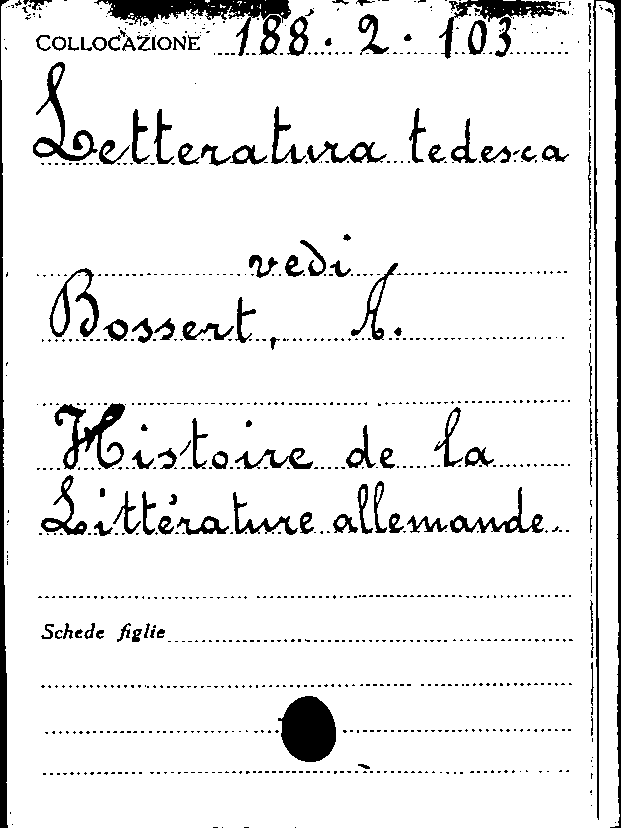 COLLOCAZIONE 188.2.103
Letteratura tedesca
vedi
Bossert, A.
Histoire de la
Littérature allemande
Schede figlie